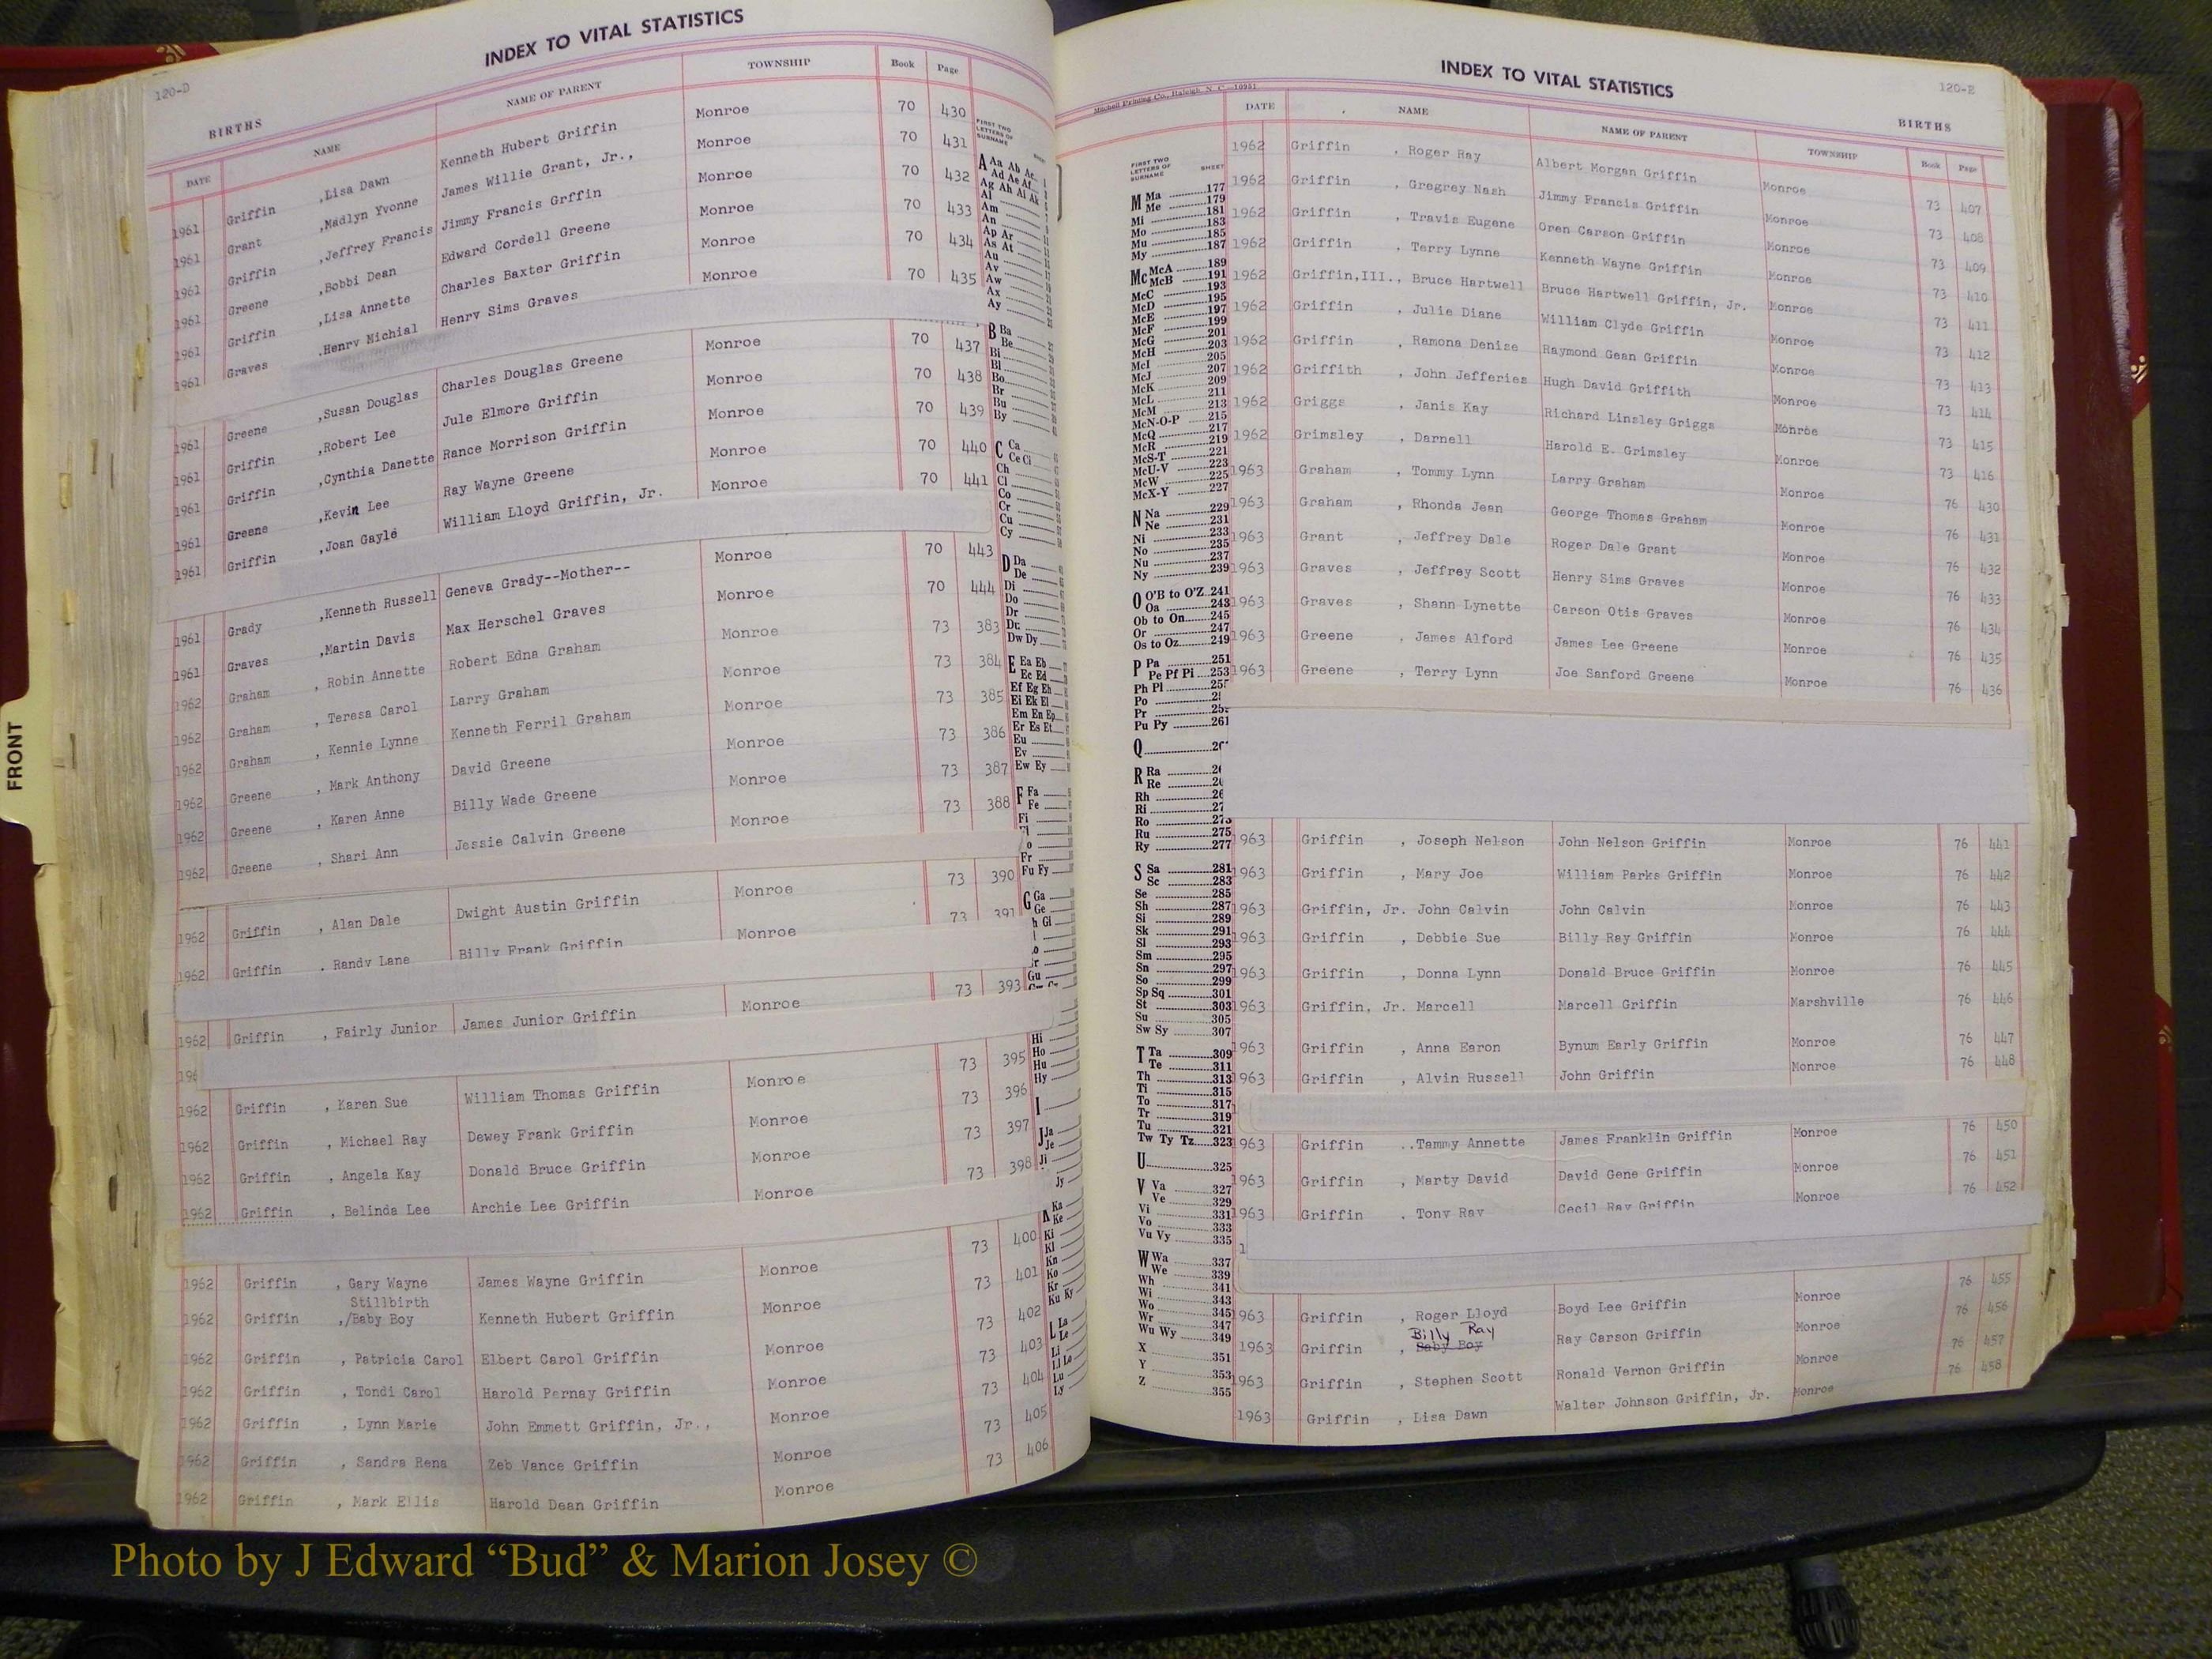 120-D
INDEX TO VITAL STATISTICS
BIRTHS
DATE NAME NAME OF PARENT TOWNSHIP Book Page
1961 Griffin ,Lisa Dawn Kenneth Hubert Griffin Monroe 70 430
1961 Grant ,Madlyn Yvonne James Willie Grant, Jr., Monroe 70 431
1961 Griffin ,Jeffrey Francis Jimmy Francis Grffin Monroe 70 432
1961 Greene ,Bobbi Dean Edward Cordell Greene Monroe 70 433
1961 Griffin ,Lisa Annette Charles Baxter Griffin Monroe 70 434
1961 Graves ,Henry Michial Henry Sims Graves Monroe 70 435
1961 Greene ,Susan Douglas Charles Douglas Greene Monroe 70 437
1961 Griffin ,Robert Lee Jule Elmore Griffin Monroe 70 438
1961 Griffin ,Cynthia Danette Rance Morrison Griffin Monroe 70 439
1961 Greene ,Kevin Lee Ray Wayne Greene Monroe 70 440
1961 Griffin ,Joan Gayle William Lloyd Griffin, Jr. Monroe 70 441
1961 Grady ,Kenneth Russell Geneva Grady--Mother-- Monroe 70 443
1961 Graves ,Martin Davis Max Herschel Graves Monroe 70 444
1962 Graham , Robin Annette Robert Edna Graham Monroe 73 383
1962 Graham , Teresa Carol Larry Graham Monroe 73 384
1962 Graham , Kennie Lynne Kenneth Ferril Graham Monroe 73 385
1962 Greene , Mark Anthony David Greene Monroe 73 386
1962 Greene , Karen Anne Billy Wade Greene Monroe 73 387
1962 Greene , Shari Ann Jessie Calvin Greene Monroe 73 388
1962 Griffin , Alan Dale Dwight Austin Griffin Monroe 73 390
1962 Griffin . Randy Lane Billy Frank Griffin Monroe 73 391
1962 Griffin , Fairly Junior James Junior Griffin Monroe 73 393
196
1962 Griffin , Karen Sue William Thomas Griffin Monroe 73 395
1962 Griffin , Michael Ray Dewey Frank Griffin Monroe 73 396
1962 Griffin , Angela Kay Donald Bruce Griffin Monroe 73 397
1962 Griffin , Belinda Lee Archie Lee Griffin Monroe 73 398
1962 Griffin , Gary Wayne James Wayne Griffin Monroe 73 400
Stillbirth
1962 Griffin ,/Baby Boy Kenneth Hubert Griffin Monroe 73 401
1962 Griffin , Patricia Carol Elbert Carol Griffin Monroe 73 402
1962 Griffin , Tondi Carol Harold Pernay Griffin Monroe 73 403
1962 Griffin , Lynn Marie John Emmett Griffin, Jr., Monroe 73 404
1962 Griffin , Sandra Rena Zeb Vance Griffin Monroe 73 405
1962 Griffin , Mark Ellis Harold Dean Griffin Monroe 73 406
FIRST TWO
LETTERS OF
SURNAME
A Aa Ab Ac
Ad Ae Af
Ag Ah Ai Ak
Al
Am
An
Ap Ar
As At
Au
Av
Aw
Ax
Ay
B Ba
Be
Bi
Bl
Bo
Br
Bu
By
C Ca
Ce Ci
Ch
Cl
Co
Cr
Cu
Cy
D Da
De
Di
Do
Dr
Du
Dw Dy
E Ea Eb
Ec Ed
Ef Eg Eh
Ei Ek El
Em En Ep
Er Es Et
Eu
Ev
Ew Ey
F Fa
Fe
Fi
Fr
Fu Fy
G Ga
Ge
Gu
Hi
Ho
Hu
Hy
I
J Ja
Je
Ji
Jy
Ka
Ke
Ki
Kl
Kn
Ko
Kr
Ku Ky
L La
Le
Li
Ll Lo
Lu
Ly
FRONT
INDEX TO VITAL STATISTICS
120-E
Mitchell Printing Co., Raleigh, N. C.—10951
BIRTHS
DATE NAME NAME OF PARENT TOWNSHIP Book Page
1962 Griffin , Roger Ray Albert Morgan Griffin Monroe 73 407
1962 Griffin , Gregrey Nash Jimmy Francis Griffin Monroe 73 408
1962 Griffin , Travis Eugene Oren Carson Griffin Monroe 73 409
1962 Griffin , Terry Lynne Kenneth Wayne Griffin Monroe 73 410
1962 Griffin,III., Bruce Hartwell Bruce Hartwell Griffin, Jr. Monroe 73 411
1962 Griffin , Julie Diane William Clyde Griffin Monroe 73 412
1962 Griffin , Ramona Denise Raymond Gean Griffin Monroe 73 413
1962 Griffith , John Jefferies Hugh David Griffith Monroe 73 414
1962 Griggs , Janis Kay Richard Linsley Griggs Monroe 73 415
1962 Grimsley , Darnell Harold E. Grimsley Monroe 73 416
1963 Graham , Tommy Lynn Larry Graham Monroe 76 430
1963 Graham , Rhonda Jean George Thomas Graham Monroe 76 431
1963 Grant , Jeffrey Dale Roger Dale Grant Monroe 76 432
1963 Graves , Jeffrey Scott Henry Sims Graves Monroe 76 433
1963 Graves , Shann Lynette Carson Otis Graves Monroe 76 434
1963 Greene , James Alford James Lee Greene Monroe 76 435
1963 Greene , Terry Lynn Joe Sanford Greene Monroe 76 436
1963 Griffin , Joseph Nelson John Nelson Griffin Monroe 76 441
1963 Griffin , Mary Joe William Parks Griffin Monroe 76 442
1963 Griffin, Jr. John Calvin John Calvin Monroe 76 443
1963 Griffin , Debbie Sue Billy Ray Griffin Monroe 76 444
1963 Griffin , Donna Lynn Donald Bruce Griffin Monroe 76 445
1963 Griffin, Jr. Marcell Marcell Griffin Marshville 76 446
1963 Griffin , Anna Earon Bynum Early Griffin Monroe 76 447
1963 Griffin , Alvin Russell John Griffin Monroe 76 448
1963 Griffin ..Tammy Annette James Franklin Griffin Monroe 76 450
1963 Griffin , Marty David David Gene Griffin Monroe 76 451
1963 Griffin . Tony Ray Cecil Ray Griffin Monroe 76 452
1963 Griffin , Roger Lloyd Boyd Lee Griffin Monroe 76 455
Billy Ray
1963 Griffin , Baby Boy Ray Carson Griffin Monroe 76 456
1963 Griffin , Stephen Scott Ronald Vernon Griffin Monroe 76 457
1963 Griffin , Lisa Dawn Walter Johnson Griffin, Jr. Monroe 76 458
FIRST TWO
LETTERS OF
SURNAME SHEET
M Ma 177
Me 179
Mi 181
Mo 183
Mu 185
My 187
Mc McA 189
McB 191
McC 193
McD 195
McE 197
McF 199
McG 201
McH 203
McI 205
McJ 207
McK 209
McL 211
McM 213
McN-O-P 215
McQ 217
McR 219
McS-T 221
McU-V 223
McW 225
McX-Y 227
N Na 229
Ne 231
Ni 233
No 235
Nu 237
Ny 239
O O'B to O'Z 241
Oa 243
Ob to On 245
Or 247
Os to Oz 249
P Pa 251
Pe Pf Pi 253
Ph Pl 255
Po
Pr
Pu Py 261
Q
R Ra
Re
Rh
Ri
Ro
Ru 275
Ry 277
S Sa 281
Sc 283
Se 285
Sh 287
Si 289
Sk 291
Sl 293
Sm 295
Sn 297
So 299
Sp Sq 301
St 303
Su 305
Sw Sy 307
T Ta 309
Te 311
Th 313
Ti 315
To 317
Tr 319
Tu 321
Tw Ty Tz 323
U 325
V Va 327
Ve 329
Vi 331
Vo 333
Vu Vy 335
W Wa 337
We 339
Wh 341
Wi 343
Wo 345
Wr 347
Wu Wy 349
X 351
Y 353
Z 355
Photo by J Edward “Bud” & Marion Josey ©